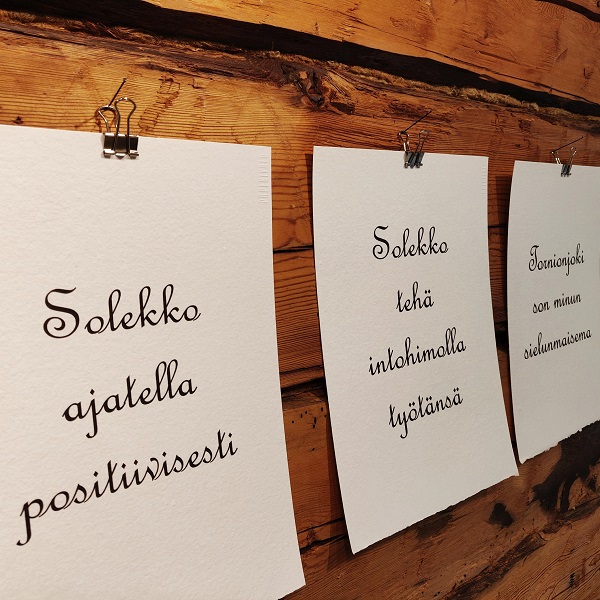 Solekko
ajatella
positiivisesti
Solekko
tehä
intohimolla
työtänsä
Tornionjoki
son minun
sielunmaisema